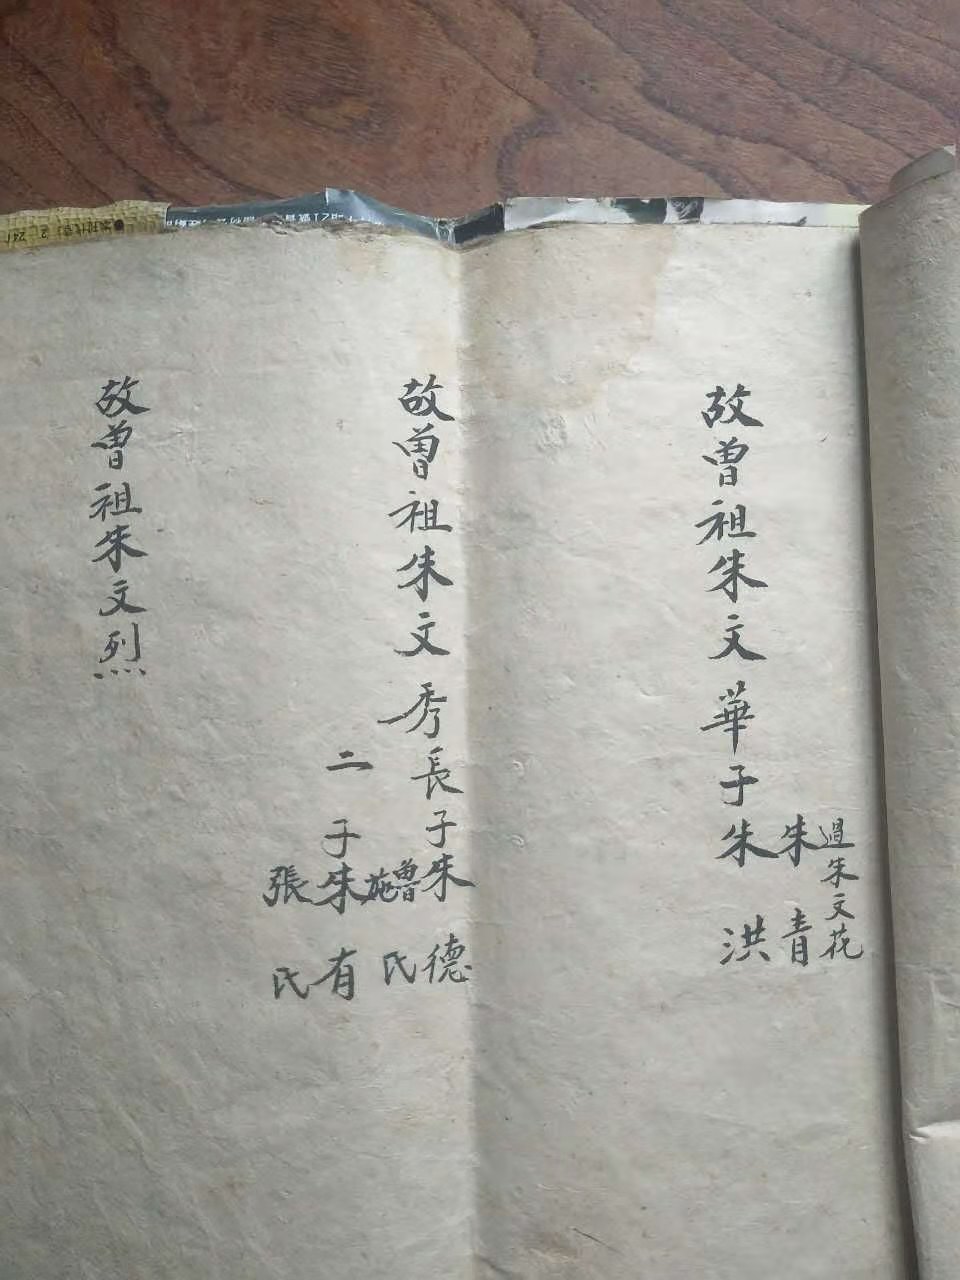 故曾祖朱文華子朱洪
朱青
過朱文花
故曾祖朱文秀長子朱德
魯施氏
二子朱有
張氏
故曾祖朱文烈